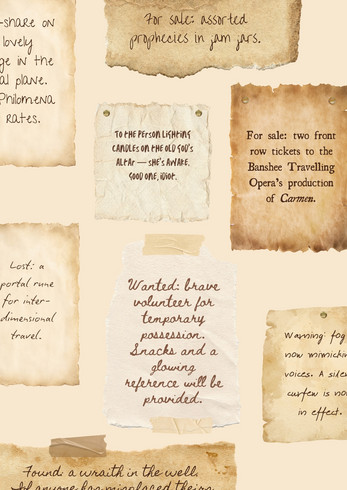 -share on
lovely
ge in the
al plane.
Philomena
rates.
For sale: assorted
prophecies in jam jars.
To the person lighting
candles on the old god's
altar — she's awake.
Good one, idiot.
For sale: two front
row tickets to the
Banshee Travelling
Opera's production
of Carmen.
Lost: a
portal rune
for inter-
dimensional
travel.
Wanted: brave
volunteer for
temporary
possession.
Snacks and a
glowing
reference will be
provided.
Warning: fog
now mimickin
voices. A silen
curfew is now
in effect.
Found: a wraith in the well.
If anyone has misplaced theirs